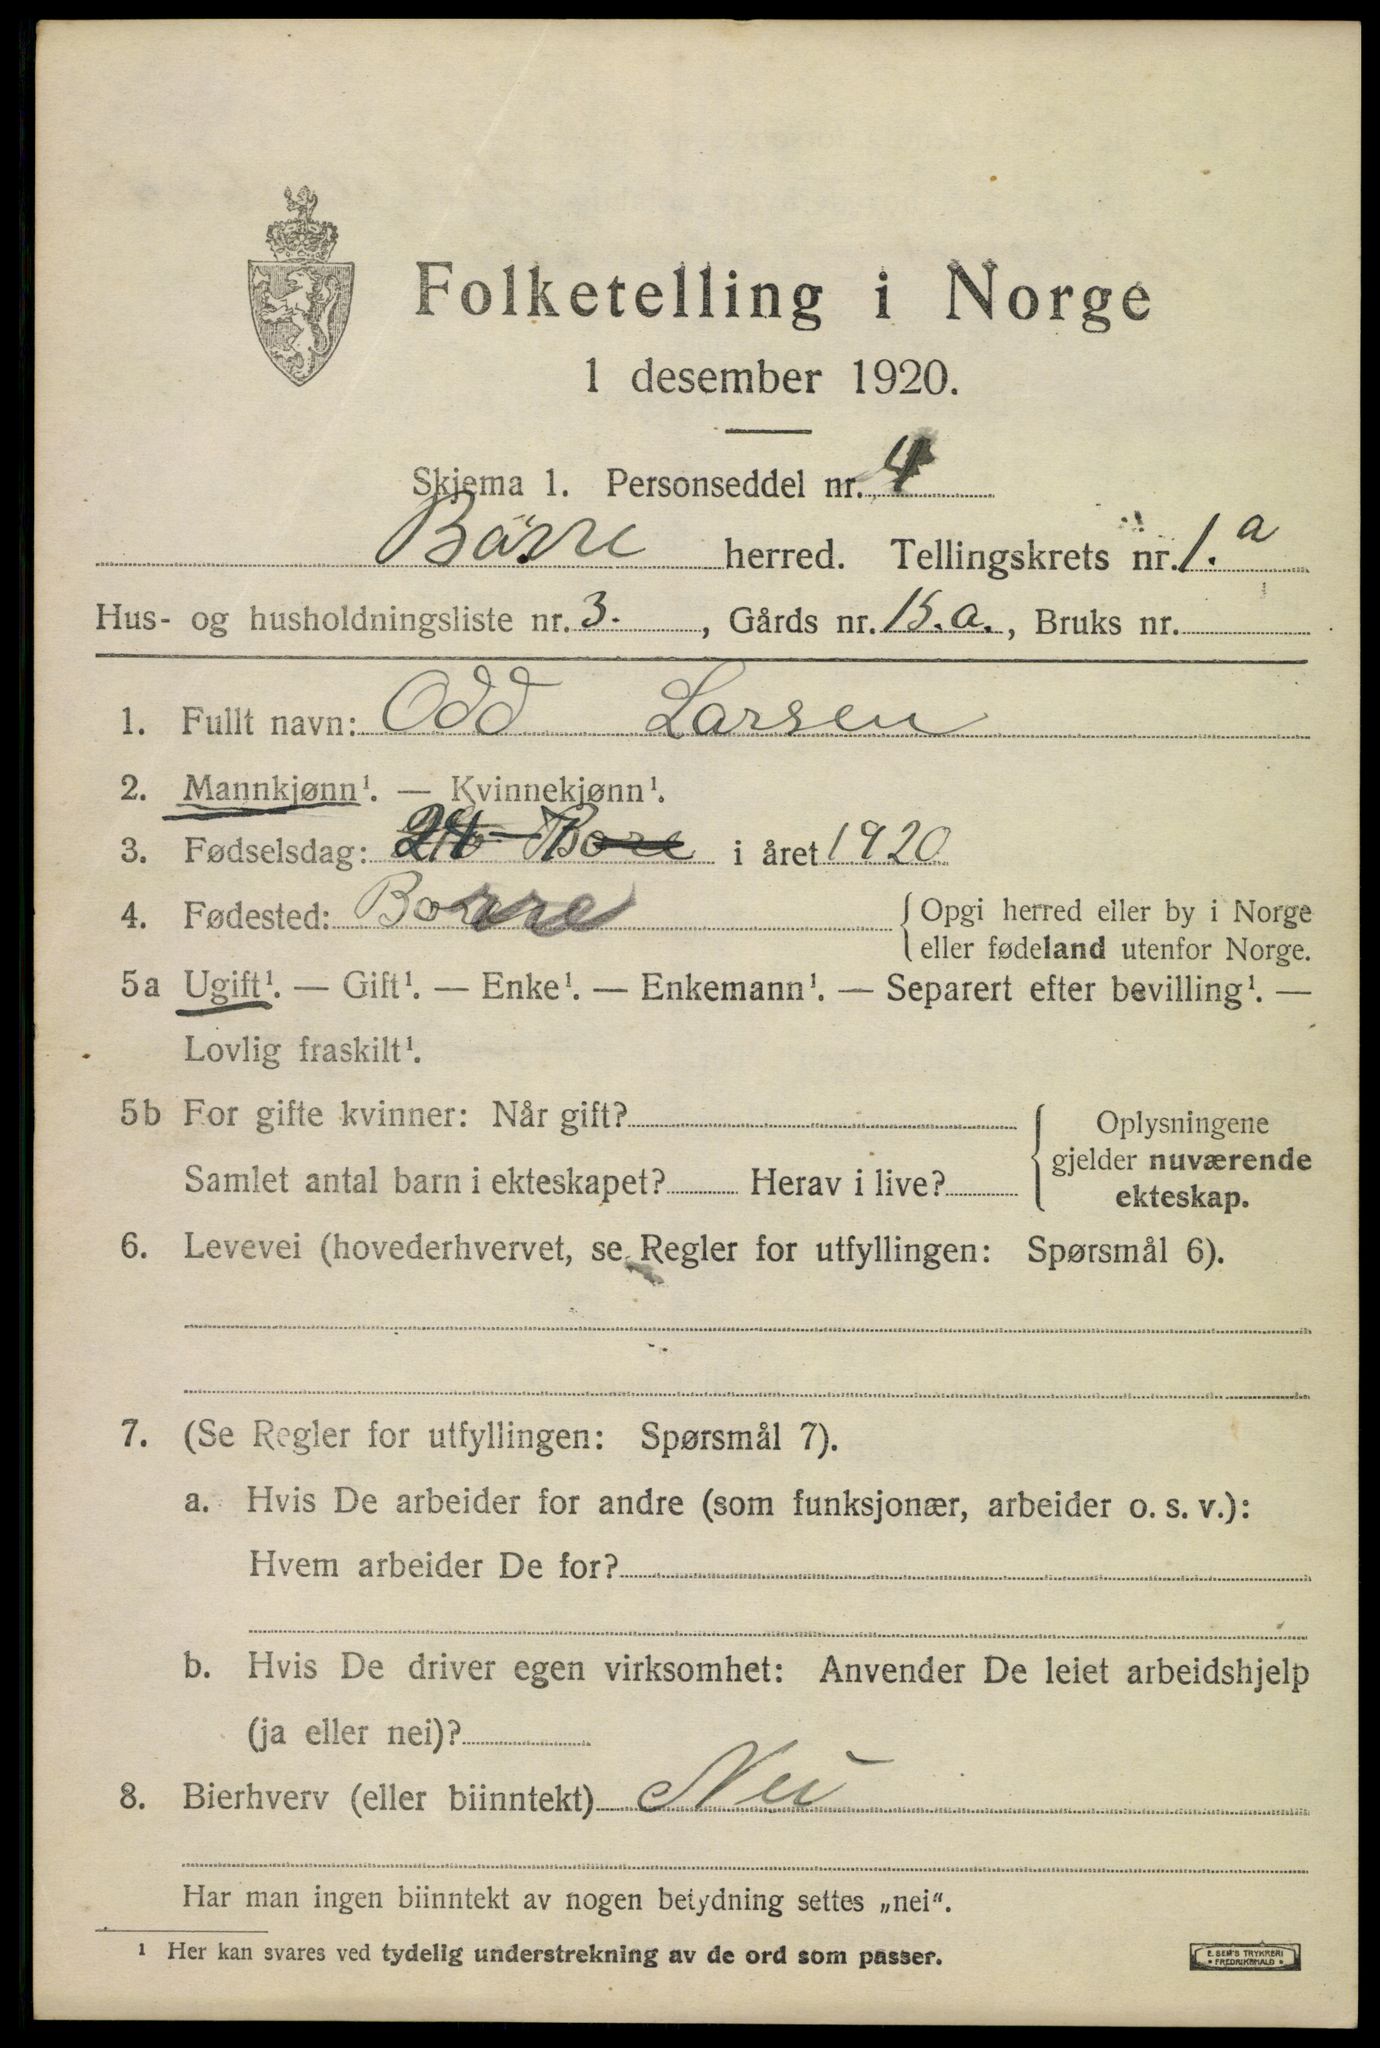 Folketelling i Norge
1 desember 1920.
Skjema 1. Personseddel nr. 4
Börre herred. Tellingskrets nr. 1.a
Hus- og husholdningsliste nr. 3. , Gårds nr. 15.a. , Bruks nr.
1. Fullt navn: Odd Larsen
2. Mannkjønn¹. — Kvinnekjønn¹.
3. Fødselsdag: i året 1920
4. Fødested: Borre {Opgi herred eller by i Norge
eller fødeland utenfor Norge.
5a Ugift¹. — Gift¹. — Enke¹. — Enkemann¹. — Separert efter bevilling¹. —
Lovlig fraskilt¹.
5b For gifte kvinner: Når gift? Oplysningene
gjelder nuværende
Samlet antal barn i ekteskapet? Herav i live?
ekteskap.
6. Levevei (hovederhvervet, se Regler for utfyllingen: Spørsmål 6).
7. (Se Regler for utfyllingen: Spørsmål 7).
a. Hvis De arbeider for andre (som funksjonær, arbeider o. s. v.):
Hvem arbeider De for?
b. Hvis De driver egen virksomhet: Anvender De leiet arbeidshjelp
(ja eller nei)?
8. Bierhverv (eller biinntekt) Nei
Har man ingen biinntekt av nogen betydning settes „nei“.
¹ Her kan svares ved tydelig understrekning av de ord som passer.
E. SEM'S TRYKKERI
• FREDRIKSHALD •